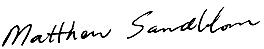 Matthew Sandblom